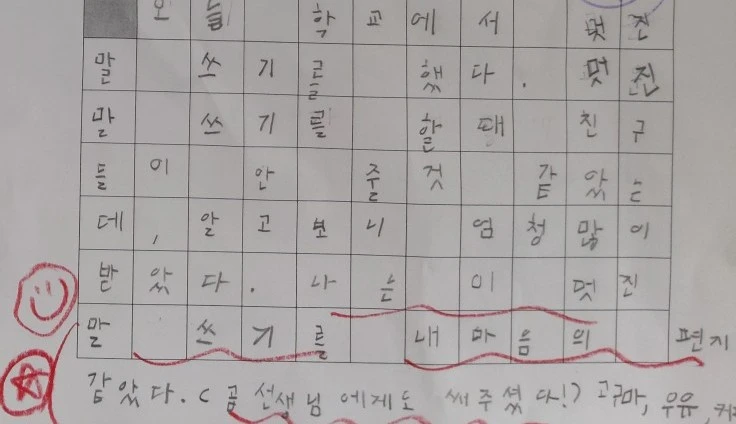 오늘 학교에서 멋진
말 쓰기를 했다. 멋진
말 쓰기를 할 때 친구
들이 안 줄 것 같았는
데, 알고보니 엄청 많이
받았다. 나는 이 멋진
말 쓰기를 내 마음의 편지
같았다. (곰 선생님에게도 써주셨다!) 고구마, 우유,